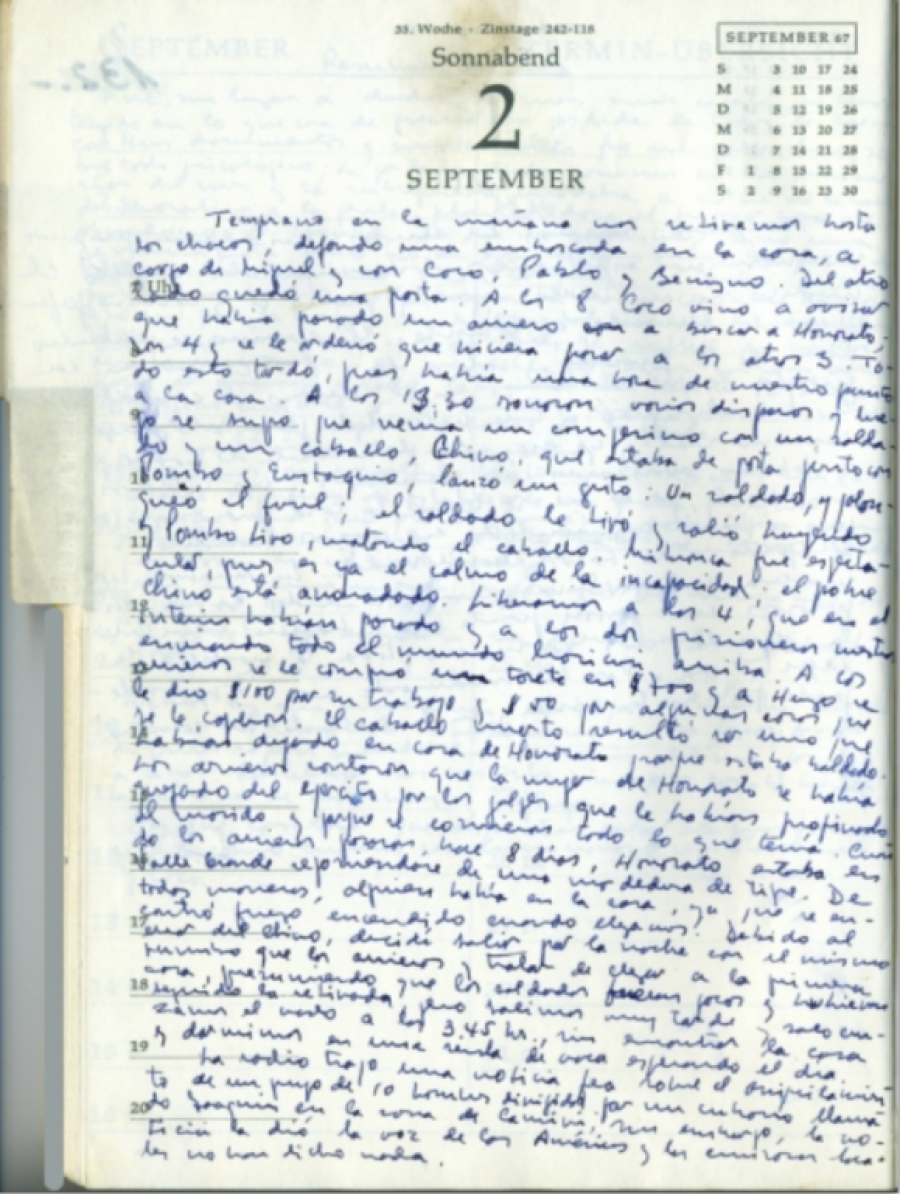 35. Woche - Zinstage 242-118
Sonnabend
2
SEPTEMBER
SEPTEMBER 67
S 3 10 17 24
M 4 11 18 25
D 5 12 19 26
M 6 13 20 27
D 7 14 21 28
F 1 8 15 22 29
S 2 9 16 23 30
Temprano en la mañana nos retiramos hasta
los chacos, dejando una emboscada en la casa, a
cargo de Miguel y con Coco, Pablo y Benigno. Del otro
lado quedó una posta. A las 8 Coco vino a avisar
que había pasado un arriero a buscar a Honorato;
son 4 y se le ordenó que hiciera pasar a los otros 3. To-
do esto tardó, pues había una hora de nuestro punto
a la casa. A las 13,30 sonaron varios disparos y lue-
go se supo que venía un campesino con un solda-
do y un caballo, Chino, que estaba de posta junto con
Pombo y Eustaquio, lanzó un grito: un soldado, y
el fusil; el soldado le tiró y salió huyendo
y Pombo tiró, matando el caballo. fue especta-
cular pues es ya el colmo de la incapacidad; el pobre
Chino está anonadado. Liberamos a los 4, que en el
interin habían pasado y a los dos prisioneros
enviando todo el mundo arriba. A los
arrieros se le compró un torete en $700 y a Hugo se
le dio $100 por su trabajo y por algunas cosas que
se le cogieron. El caballo muerto resultó ser uno que
habían dejado en casa de Honorato porque estaba baldado.
Los arrieros contaron que la mujer de Honorato se había
quejado del ejército por los golpes que le habían propinado
al marido y porque se comieran todo lo que tenía. Cuan
do los arrieros pasaron, hace 8 días, Honorato estaba en
Valle Grande reponiéndose de una mordedura de tigre. De
todas maneras, alguien había en la casa, ya que se en-
contró fuego encendido cuando llegamos. Debido al
error del Chino, decidí salir por la noche con el mismo
rumbo que los arrieros y tratar de llegar a la primera
casa, presumiendo que los soldados fueran pocos y hubieran
seguido la retirada, pero salimos muy tarde y solo cru-
zamos el vado a las 3.45 hs, sin encontrar la casa
y dormimos en una senda de vaca esperando el día
La radio trajo una noticia fea sobre el aniquilamien
to de un grupo de 10 hombres dirigidos por un cubano llama
do Joaquín en la zona de Camiri; sin embargo, la no-
ticia la dió la voz de las Américas y las emisoras loca-
les no han dicho nada.